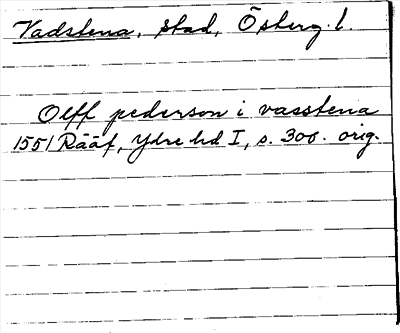 Vadstena, stad, Österg. l.
Olff pederson i vasstena
1551 Rääf, Ydre hd I, s. 300. orig.